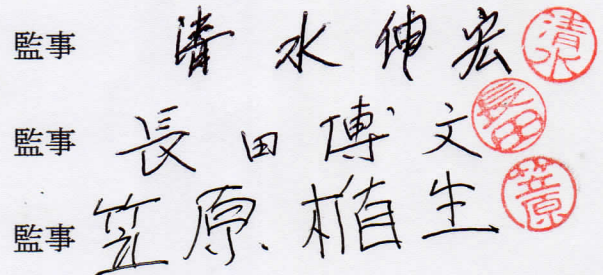 監事 清水伸宏 清水
監事 長田博文 長田
監事 笠原植生 笠原